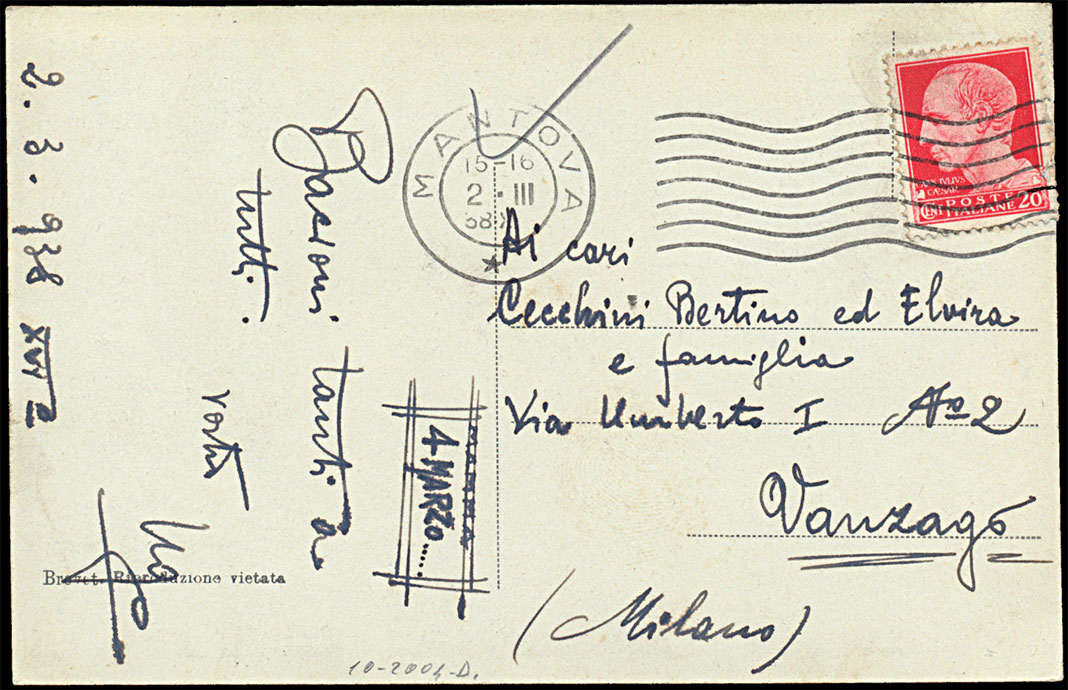 2.3.938 XVI
Bacioni tanti a
tutti.
vostri
4 MARZO......
Brevet. Riproduzione vietata
MANTOVA
15-16
2.III
38.
JULIUS
CAESAR
POSTE
ITALIANE
CENT 20
Ai cari
Cecchini Bertino ed Elvira
e famiglia
Via Umberto I No 2
Vanzago
(Milano)
10-2004-D.